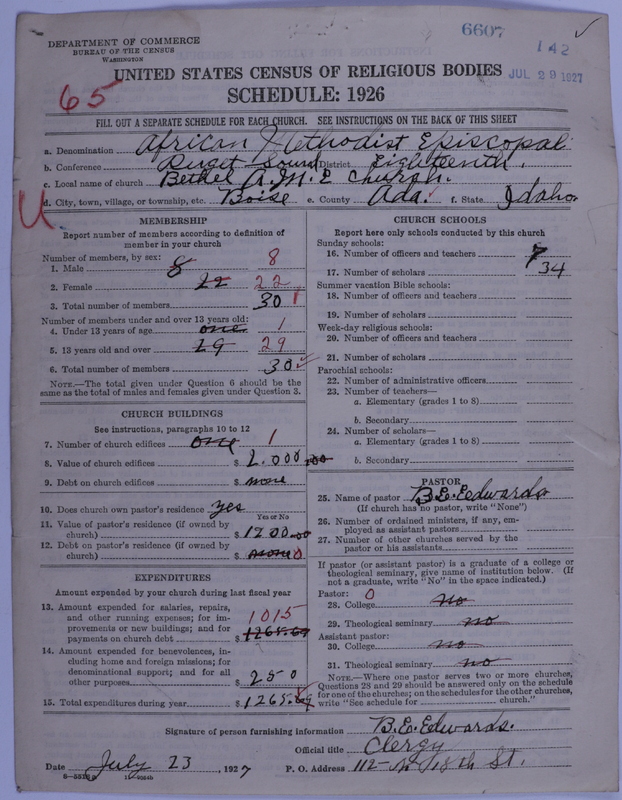 6607
142
JUL 29 1927
DEPARTMENT OF COMMERCE
BUREAU OF THE CENSUS
WASHINGTON
UNITED STATES CENSUS OF RELIGIOUS BODIES
SCHEDULE: 1926
65
FILL OUT A SEPARATE SCHEDULE FOR EACH CHURCH. SEE INSTRUCTIONS ON THE BACK OF THIS SHEET
a. Denomination African Methodist Episcopal
b. Conference Puget Sound District Eighteenth.
c. Local name of church Bethel A.M.E Church.
d. City, town, village, or township, etc. Boise e. County Ada. f. State Idaho
U
MEMBERSHIP
Report number of members according to definition of
member in your church
Number of members, by sex:
1. Male 8 8
2. Female 22 22
3. Total number of members 30
Number of members under and over 13 years old:
4. Under 13 years of age one 1
5. 13 years old and over 29 29
6. Total number of members 30
NOTE.—The total given under Question 6 should be the
same as the total of males and females given under Question 3.
CHURCH BUILDINGS
See instructions, paragraphs 10 to 12
7. Number of church edifices one 1
8. Value of church edifices $ 2.000
9. Debt on church edifices $ none
10. Does church own pastor's residence yes
Yes or No
11. Value of pastor's residence (if owned by
church) $ 1200.00
12. Debt on pastor's residence (if owned by
church) $ none 0
EXPENDITURES
Amount expended by your church during last fiscal year
13. Amount expended for salaries, repairs,
and other running expenses; for im-
provements or new buildings; and for 1015
payments on church debt $ 1265.69
14. Amount expended for benevolences, in-
cluding home and foreign missions; for
denominational support; and for all
other purposes $ 250
15. Total expenditures during year $ 1265.69
CHURCH SCHOOLS
Report here only schools conducted by this church
Sunday schools:
16. Number of officers and teachers 7
17. Number of scholars 34
Summer vacation Bible schools:
18. Number of officers and teachers
19. Number of scholars
Week-day religious schools:
20. Number of officers and teachers
21. Number of scholars
Parochial schools:
22. Number of administrative officers
23. Number of teachers—
a. Elementary (grades 1 to 8)
b. Secondary
24. Number of scholars—
a. Elementary (grades 1 to 8)
b. Secondary
PASTOR
25. Name of pastor B.E. Edwards
(If church has no pastor, write "None")
26. Number of ordained ministers, if any, em-
ployed as assistant pastors
27. Number of other churches served by the
pastor or his assistants
If pastor (or assistant pastor) is a graduate of a college or
theological seminary, give name of institution below. (If
not a graduate, write "No" in the space indicated.)
Pastor: 0
28. College no
29. Theological seminary no
Assistant pastor:
30. College no
31. Theological seminary no
NOTE.—Where one pastor serves two or more churches,
Questions 28 and 29 should be answered only on the schedule
for one of the churches; on the schedules for the other churches,
write "See schedule for church."
Signature of person furnishing information B.E. Edwards.
Official title Clergy
Date July 23, 1927 P. O. Address 112-N 18th St.